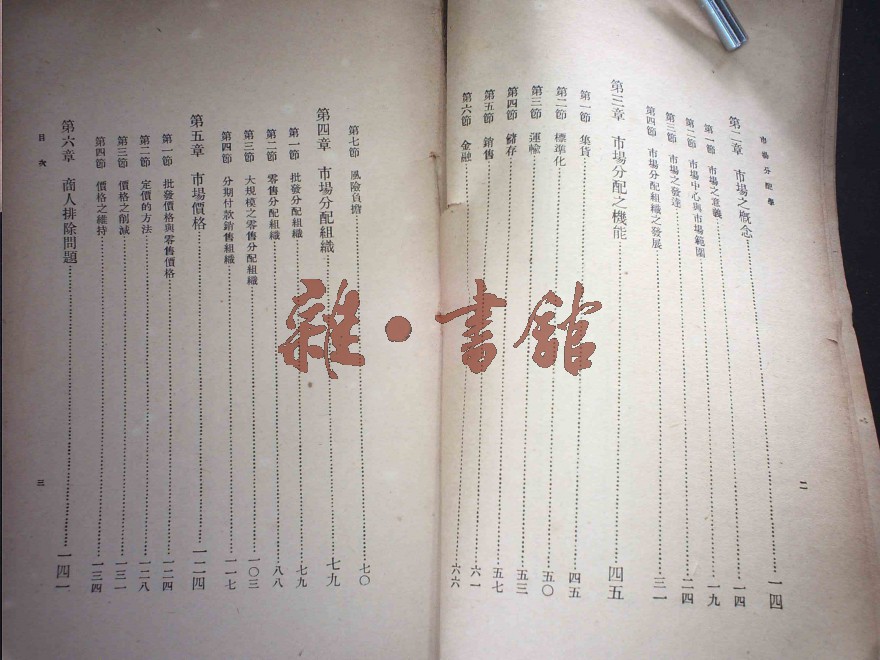 市場分配學
二
第二章 市場之概念 一四
第一節 市場之意義 一四
第二節 市場中心與市場範圍 一九
第三節 市場之發達 二四
第四節 市場分配組織之發展 三一
第三章 市場分配之機能 四五
第一節 集貨 四五
第二節 標準化 五〇
第三節 運輸 五三
第四節 儲存 五七
第五節 銷售 六一
第六節 金融 六六
第七節 風險負擔 七〇
第四章 市場分配組織 七九
第一節 批發分配組織 七九
第二節 零售分配組織 八八
第三節 大規模之零售分配組織 一〇三
第四節 分期付款銷售組織 一一七
第五章 市場價格 一二四
第一節 批發價格與零售價格 一二四
第二節 定價的方法 一二八
第三節 價格之削減 一三一
第四節 價格之維持 一三四
第六章 商人排除問題 一四一
目次
三
雜·書館